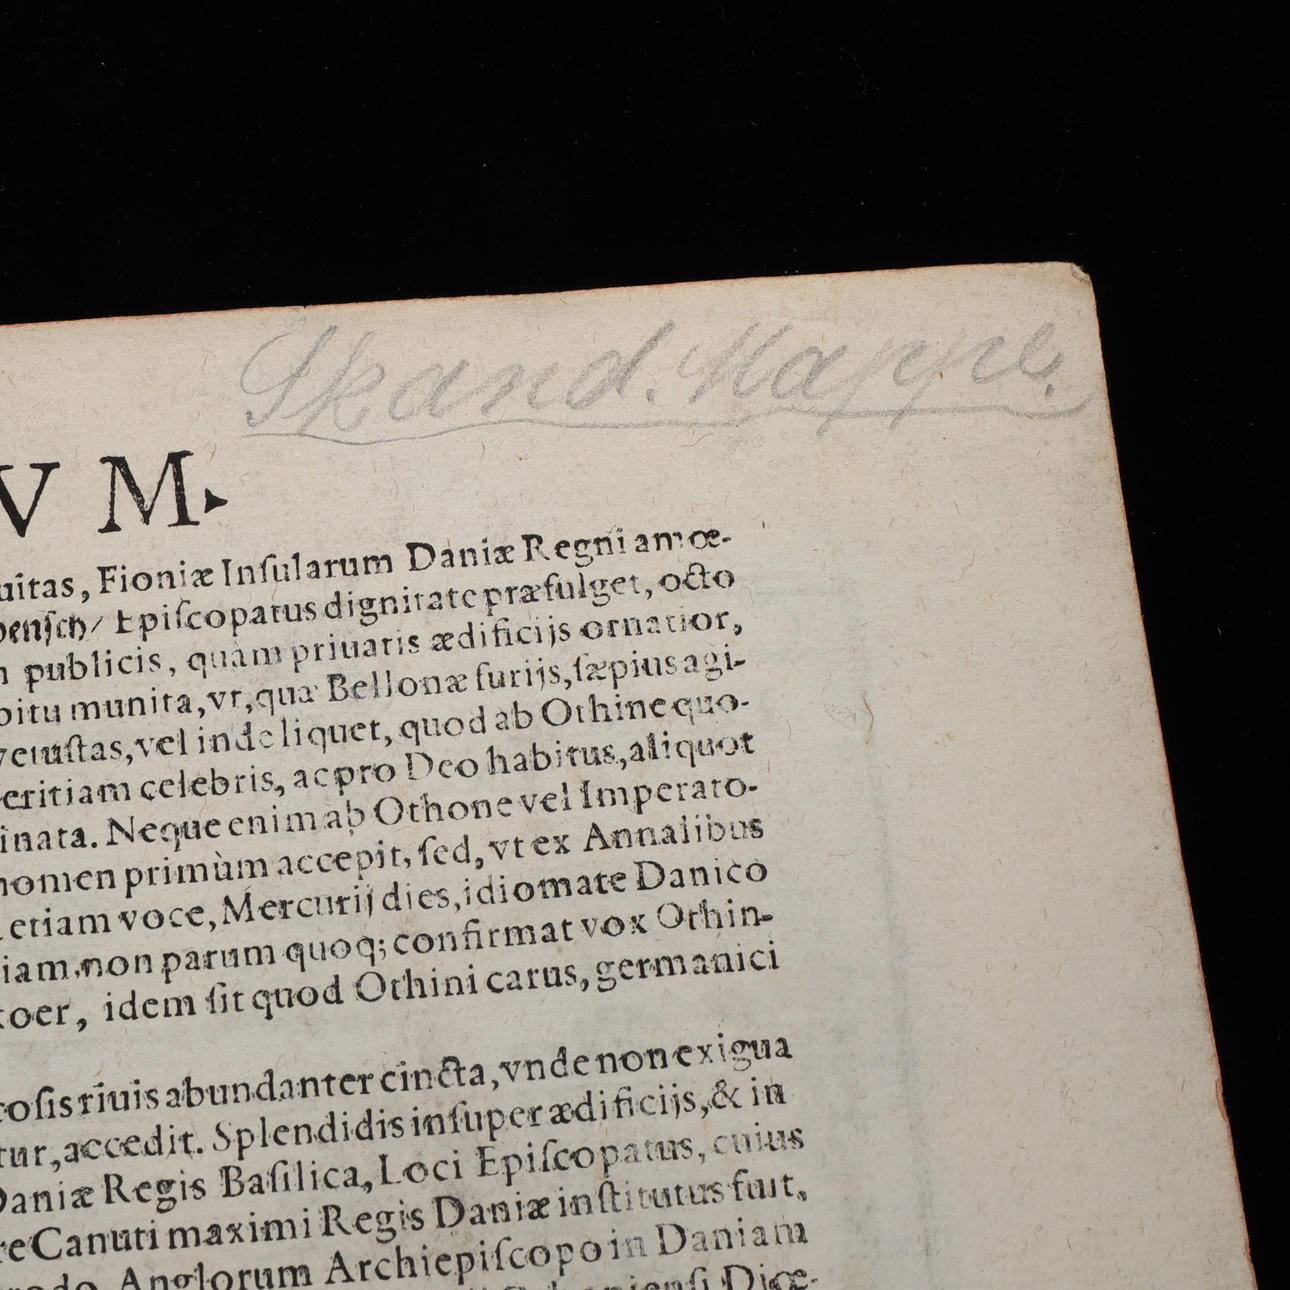 Skand. Mappe.
VM.
uitas, Fioniæ Inſularum Daniæ Regni amœ-
penſch/ Epiſcopatus dignitate præfulget, octo
publicis, quàm priuatis ædificijs ornatior,
bitu munita, vt, qua Bellonæ furijs, ſæpius agi-
vetuſtas, vel inde liquet, quod ab Othine quo-
eritiam celebris, ac pro Deo habitus, aliquot
inata. Neque enim ab Othone vel Imperato-
nomen primùm accepit, ſed, vt ex Annalibus
etiam voce, Mercurij dies, idiomate Danico
iam, non parum quoq; confirmat vox Othin-
koer, idem ſit quod Othini carus, germanici
coſis riuis abundanter cincta, vnde non exigua
tur, accedit. Splendidis inſuper ædificijs, & in
Daniæ Regis Baſilica, Loci Epiſcopatus, cuius
re Canuti maximi Regis Daniæ inſtitutus fuit,
Anglorum Archiepiſcopo in Daniam
Diœ-